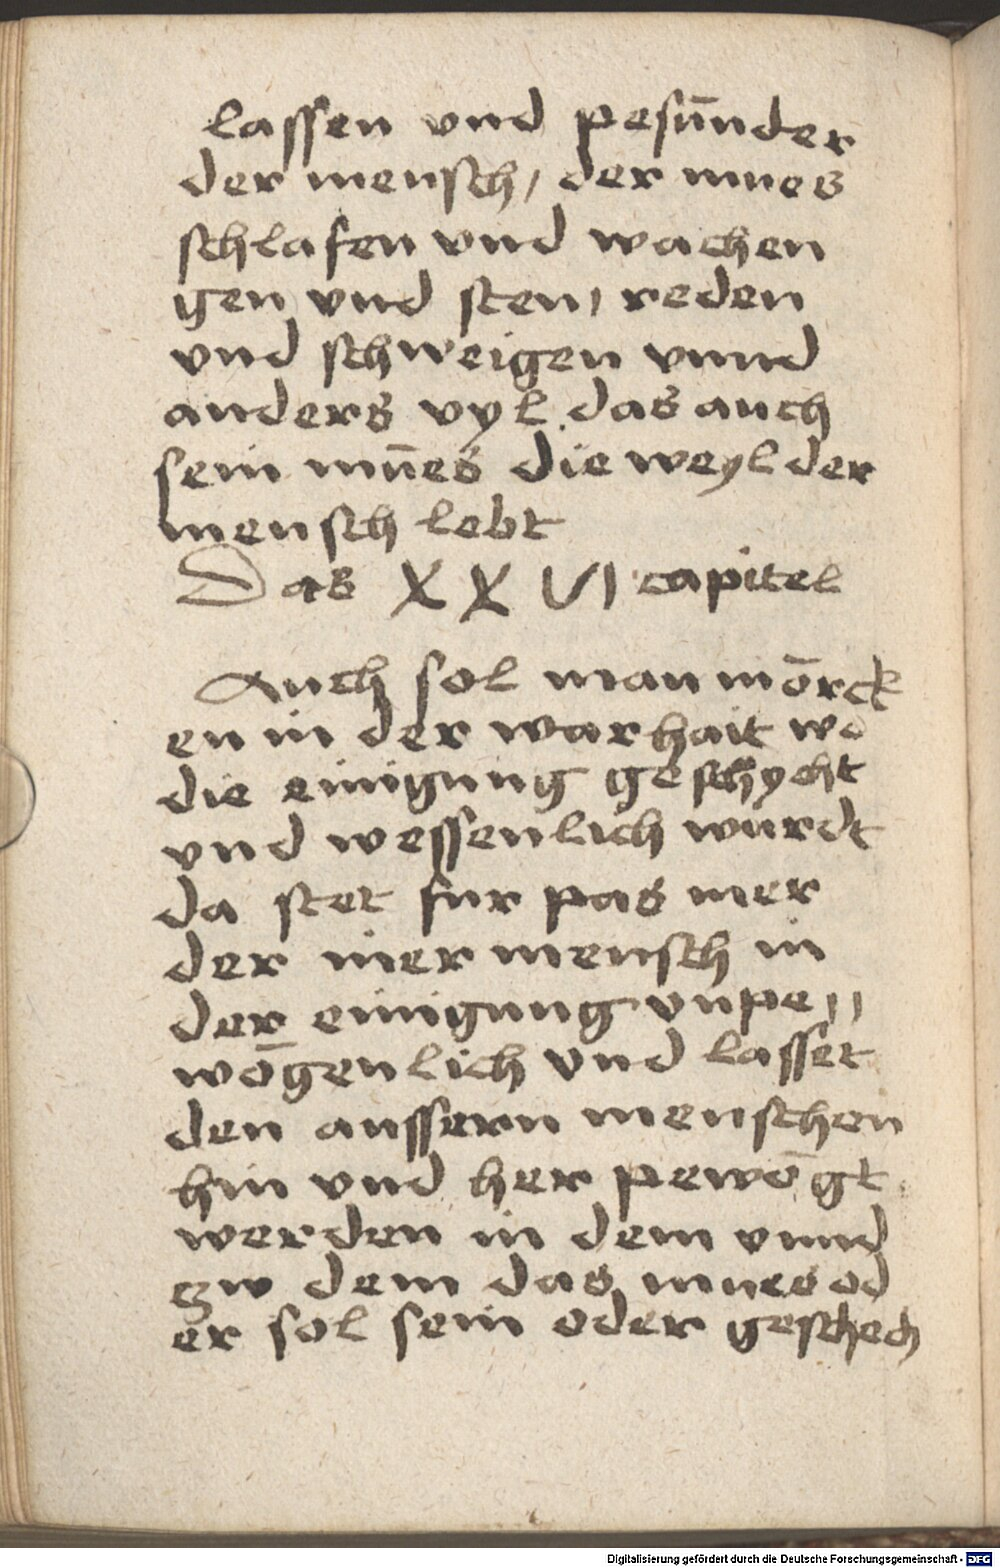 lassen vnd pesūnder
der mensch/ der mues
schlafen vnd wachen
gen vnd sten/ reden
vnd schweigen vnnd
anders vyl das auch
sein mūes die weyl der
mensch lebt
Das XXVI capitel
Auch sol man mōrck
en in der warhait wo
die einigung geschycht
vnd wessenlich wurdt
da stet fur pas mer
der iner mensch in
der einigung vnpe//
wōgenlich vnd lasset
den aussern menschen
hin vnd her pewōgt
werden in dem vnnd
zw dem das mues od
er sol sein oder geschech
Digitalisierung gefördert durch die Deutsche Forschungsgemeinschaft - DFG